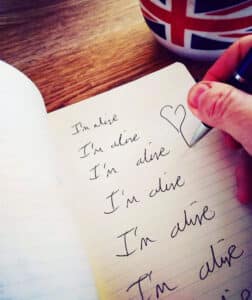 I'm alive
I'm alive
I'm alive
I'm alive
I'm alive
I'm alive
I'm alive